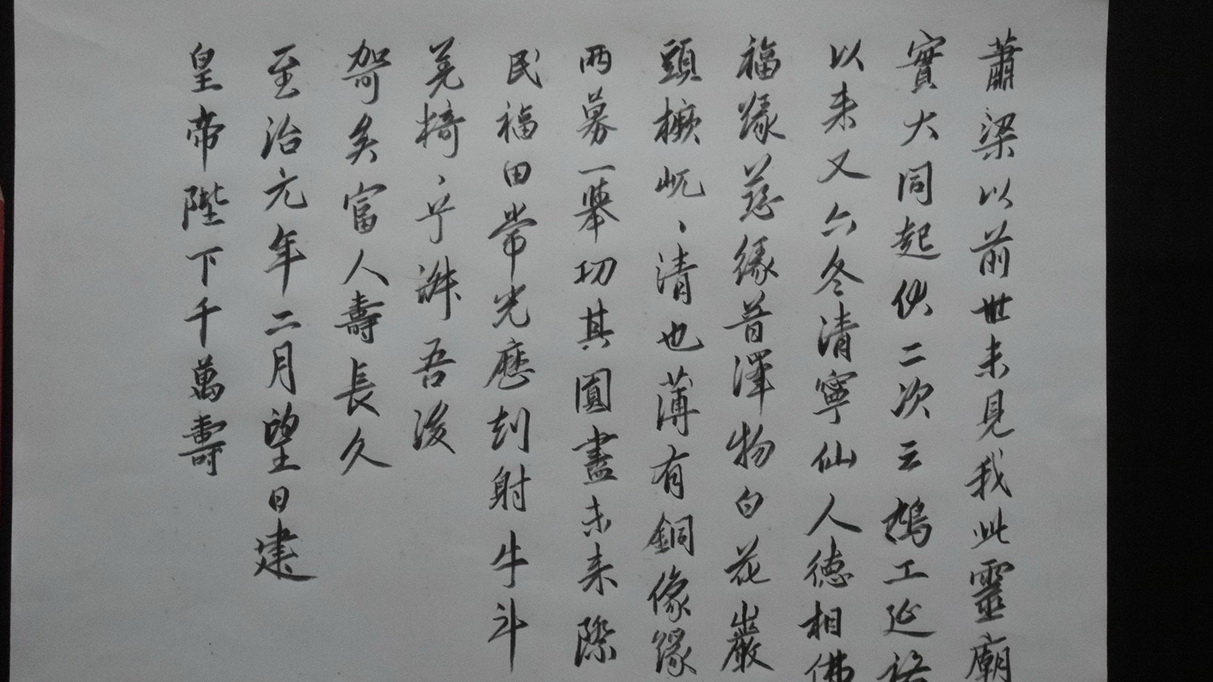 蕭梁以前世未見我此靈廟
實大同起伙二次云鳩工延祐
以来又六冬清寧仙人德相佛
福緣慈緣普澤物白花巖
頭橛屼、清也薄有銅像緣
兩募一舉切其圓盡未来際
民福田常光應刻射牛斗
羌猗、乎吾後
矣富人壽長久
至治元年二月望日建
皇帝陛下千萬壽